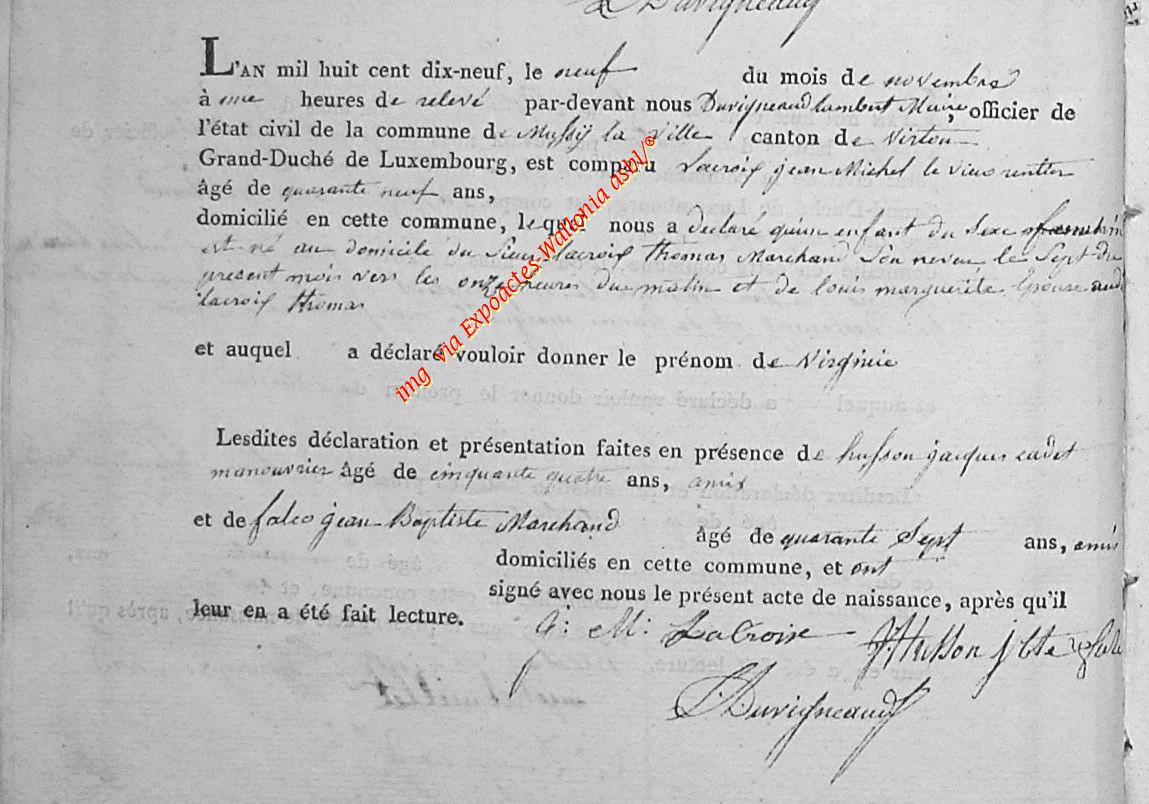 L. Duvigneaud
L'AN mil huit cent dix-neuf, le neuf du mois de novembre
à une heures de relevé par-devant nous Duvigneaud lambert Maire, officier de
l'état civil de la commune de Mussy la Ville canton de Virton
Grand-Duché de Luxembourg, est comparu Lacroix jean Michel le vieux rentier
âgé de quarante neuf ans,
domicilié en cette commune, lequel nous a déclaré qu'un enfant du Sexe feminin
est né au domicile du Sieur Lacroix Thomas Marchand Son neveu le Sept du
present mois vers les onze heures du matin et de louis marguerite Epouse aud
lacroix thomas
et auquel a déclaré vouloir donner le prénom de Virginie
Lesdites déclaration et présentation faites en présence de husson jacques cadet
manouvrier âgé de cinquante quatre ans, amis
et de falco jean Baptiste Marchand âgé de quarante Sept ans, amis
domiciliés en cette commune, et ont
signé avec nous le présent acte de naissance, après qu'il
leur en a été fait lecture.
J: M: LaCroix JHusson jbte falco
L. Duvigneaud
img via Expoactes-Wallonia asbl/©